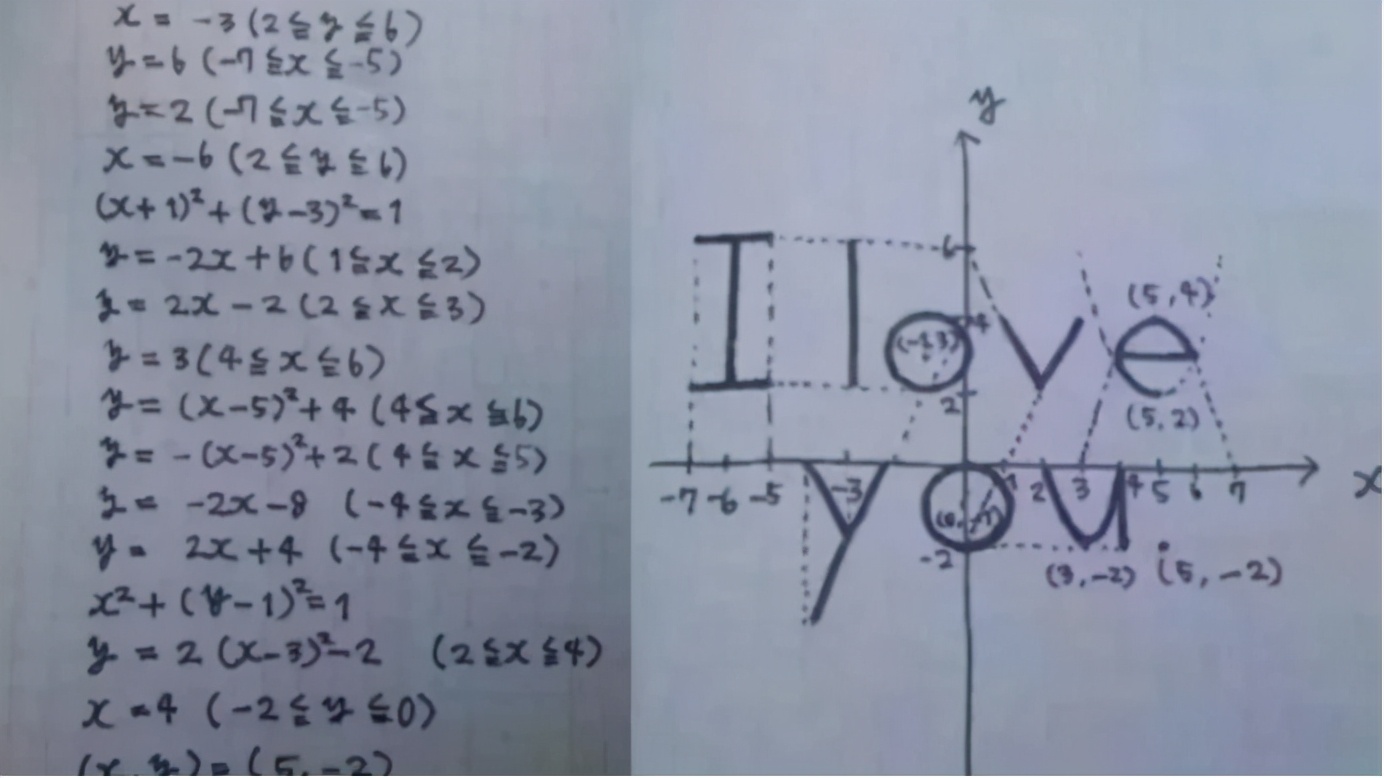 x = -3 (2 ≦ y ≦ 6)
y = 6 (-7 ≦ x ≦ -5)
y = 2 (-7 ≦ x ≦ -5)
x = -6 (2 ≦ y ≦ 6)
(x+1)² + (y-3)² = 1
y = -2x + 6 (1 ≦ x ≦ 2)
y = 2x - 2 (2 ≦ x ≦ 3)
y = 3 (4 ≦ x ≦ 6)
y = (x-5)² + 4 (4 ≦ x ≦ 6)
y = -(x-5)² + 2 (4 ≦ x ≦ 5)
y = -2x - 8 (-4 ≦ x ≦ -3)
y = 2x + 4 (-4 ≦ x ≦ -2)
x² + (y-1)² = 1
y = 2(x-3)² - 2 (2 ≦ x ≦ 4)
x = 4 (-2 ≦ y ≦ 0)
(x, y) = (5, -2)
y
6
I love
(5, 4)
4
(-1, 3)
2
(5, 2)
-7 -6 -5 -3 1 2 3 4 5 6 7 x
you
(0, -1)
-2
(3, -2) (5, -2)